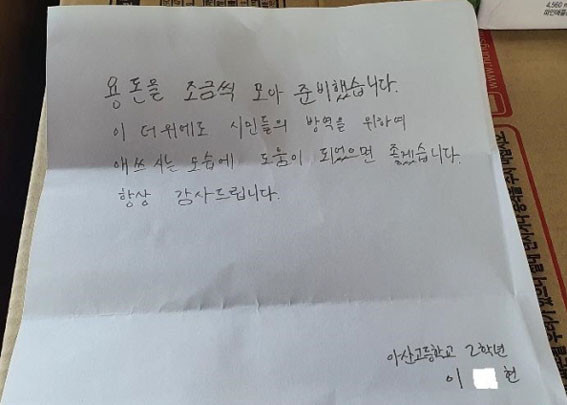 용돈을 조금씩 모아 준비했습니다.
이 더위에도 시민들의 방역을 위하여
애쓰시는 모습에 도움이 되었으면 좋겠습니다.
항상 감사드립니다.
아산고등학교 2학년
이 현
4,560